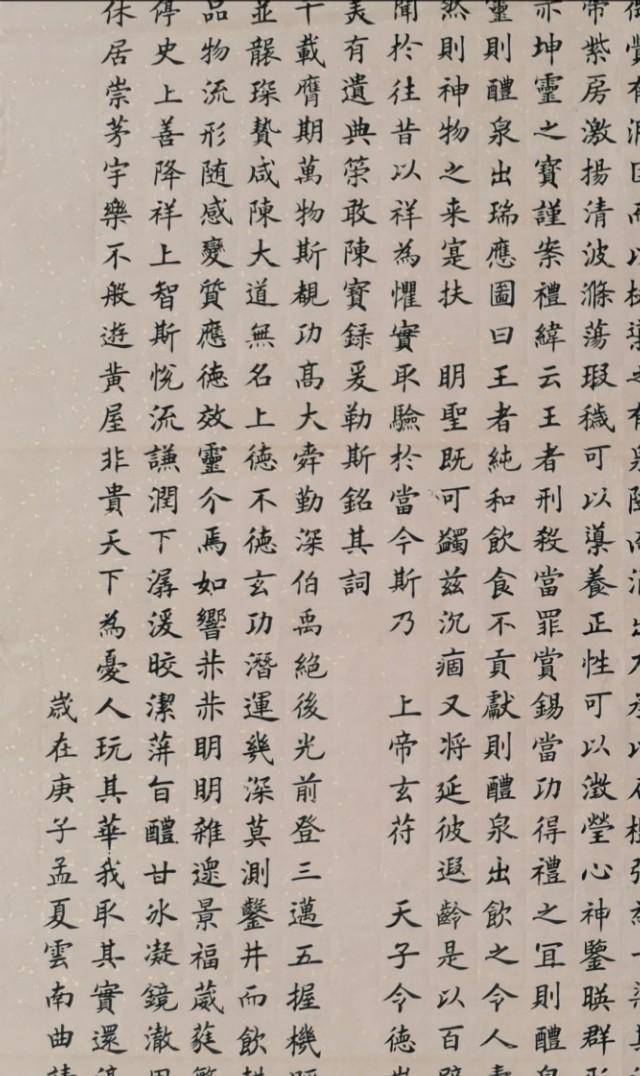 有潤因而以杖導之有泉隨而涌出乃承以石檻引為一渠其
帝紫房激揚清波滌蕩瑕穢可以導養正性可以澂瑩心神鑒暎群形
亦坤靈之寶謹案禮緯云王者刑殺當罪賞錫當功得禮之冝則醴泉
靈則醴泉出瑞應圖曰王者純和飲食不貢獻則醴泉出飲之令人壽
然則神物之来寔扶 明聖既可蠲兹沉痼又将延彼遐齡是以百辟
聞於往昔以祥為懼實取驗於當今斯乃 上帝玄苻 天子令德
美有遺典榮敢陳寶録爰勒斯銘其詞
千載膺期萬物斯覩功髙大舜勤深伯禹絕後光前登三邁五握機蹈
並襲琛贄咸陳大道無名上德不德玄功潛運幾深莫測鑿井而飲耕
品物流形随感變質應德效靈介焉如響赫赫明明雜遝景福葳蕤繁
停史上善降祥上智斯悅流謙潤下潺湲皎潔蓱旨醴甘冰凝鏡澈用
休居崇茅宇樂不般遊黃屋非貴天下為憂人玩其華我取其實還淳
歲在庚子孟夏雲南曲靖